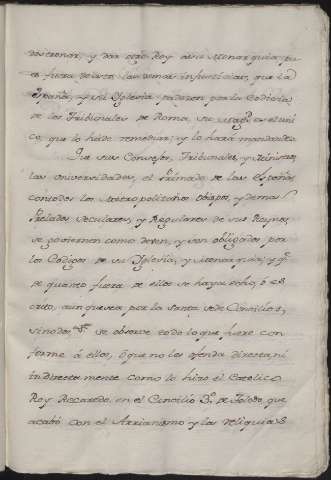 destronar, y dar otro Rey a su Monarquia, pu
es fuera de esto, las demas injusticias, que la
España, y su Yglesia padecen por la Codicia
de los Tribunales de Roma, su Magd. es el uni
co, que lo hade remediar, y lo hará mandando
Que sus Consejos, Tribunales, y Ministros,
las Universidades, el Primado de las Españas
con todos los Metropolitanos Obispos, y demas
Prelados Seculares, y Regulares de sus Reynos
se goviernen como deven, y son obligados por
los Codigos de su Yglesia, y Monarquia, y q.e
de quanto fuera de ellos se haya dicho, ó es
crito, aunque sea por la Santa Sede Concilios,
sinodos &.a se observe todo lo que fuere con
forme á ellos, ó que no les ofenda directa, ni
indirectamente como lo hizo el Catolico
Rey Recaredo, en el Concilio 3.º de Toledo, que
acabó con el Arrianismo y las reliquias